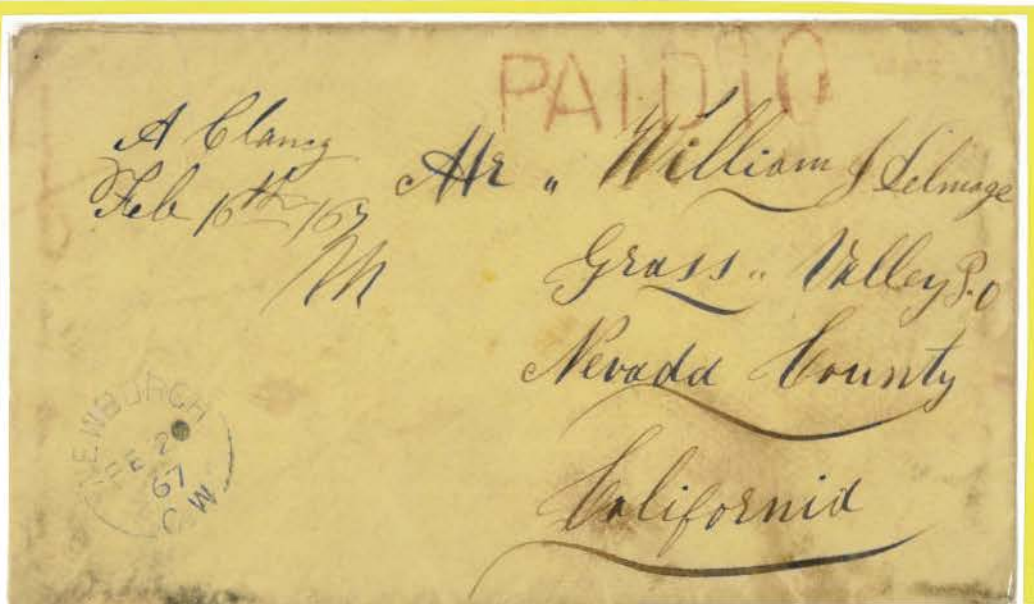 PAID 10
A Clancy
Feb 16th /67
Mr " William J Selmage
Grass " Valley P.O
Nevada County
California
NEWBURGH
FE 2
67
C W